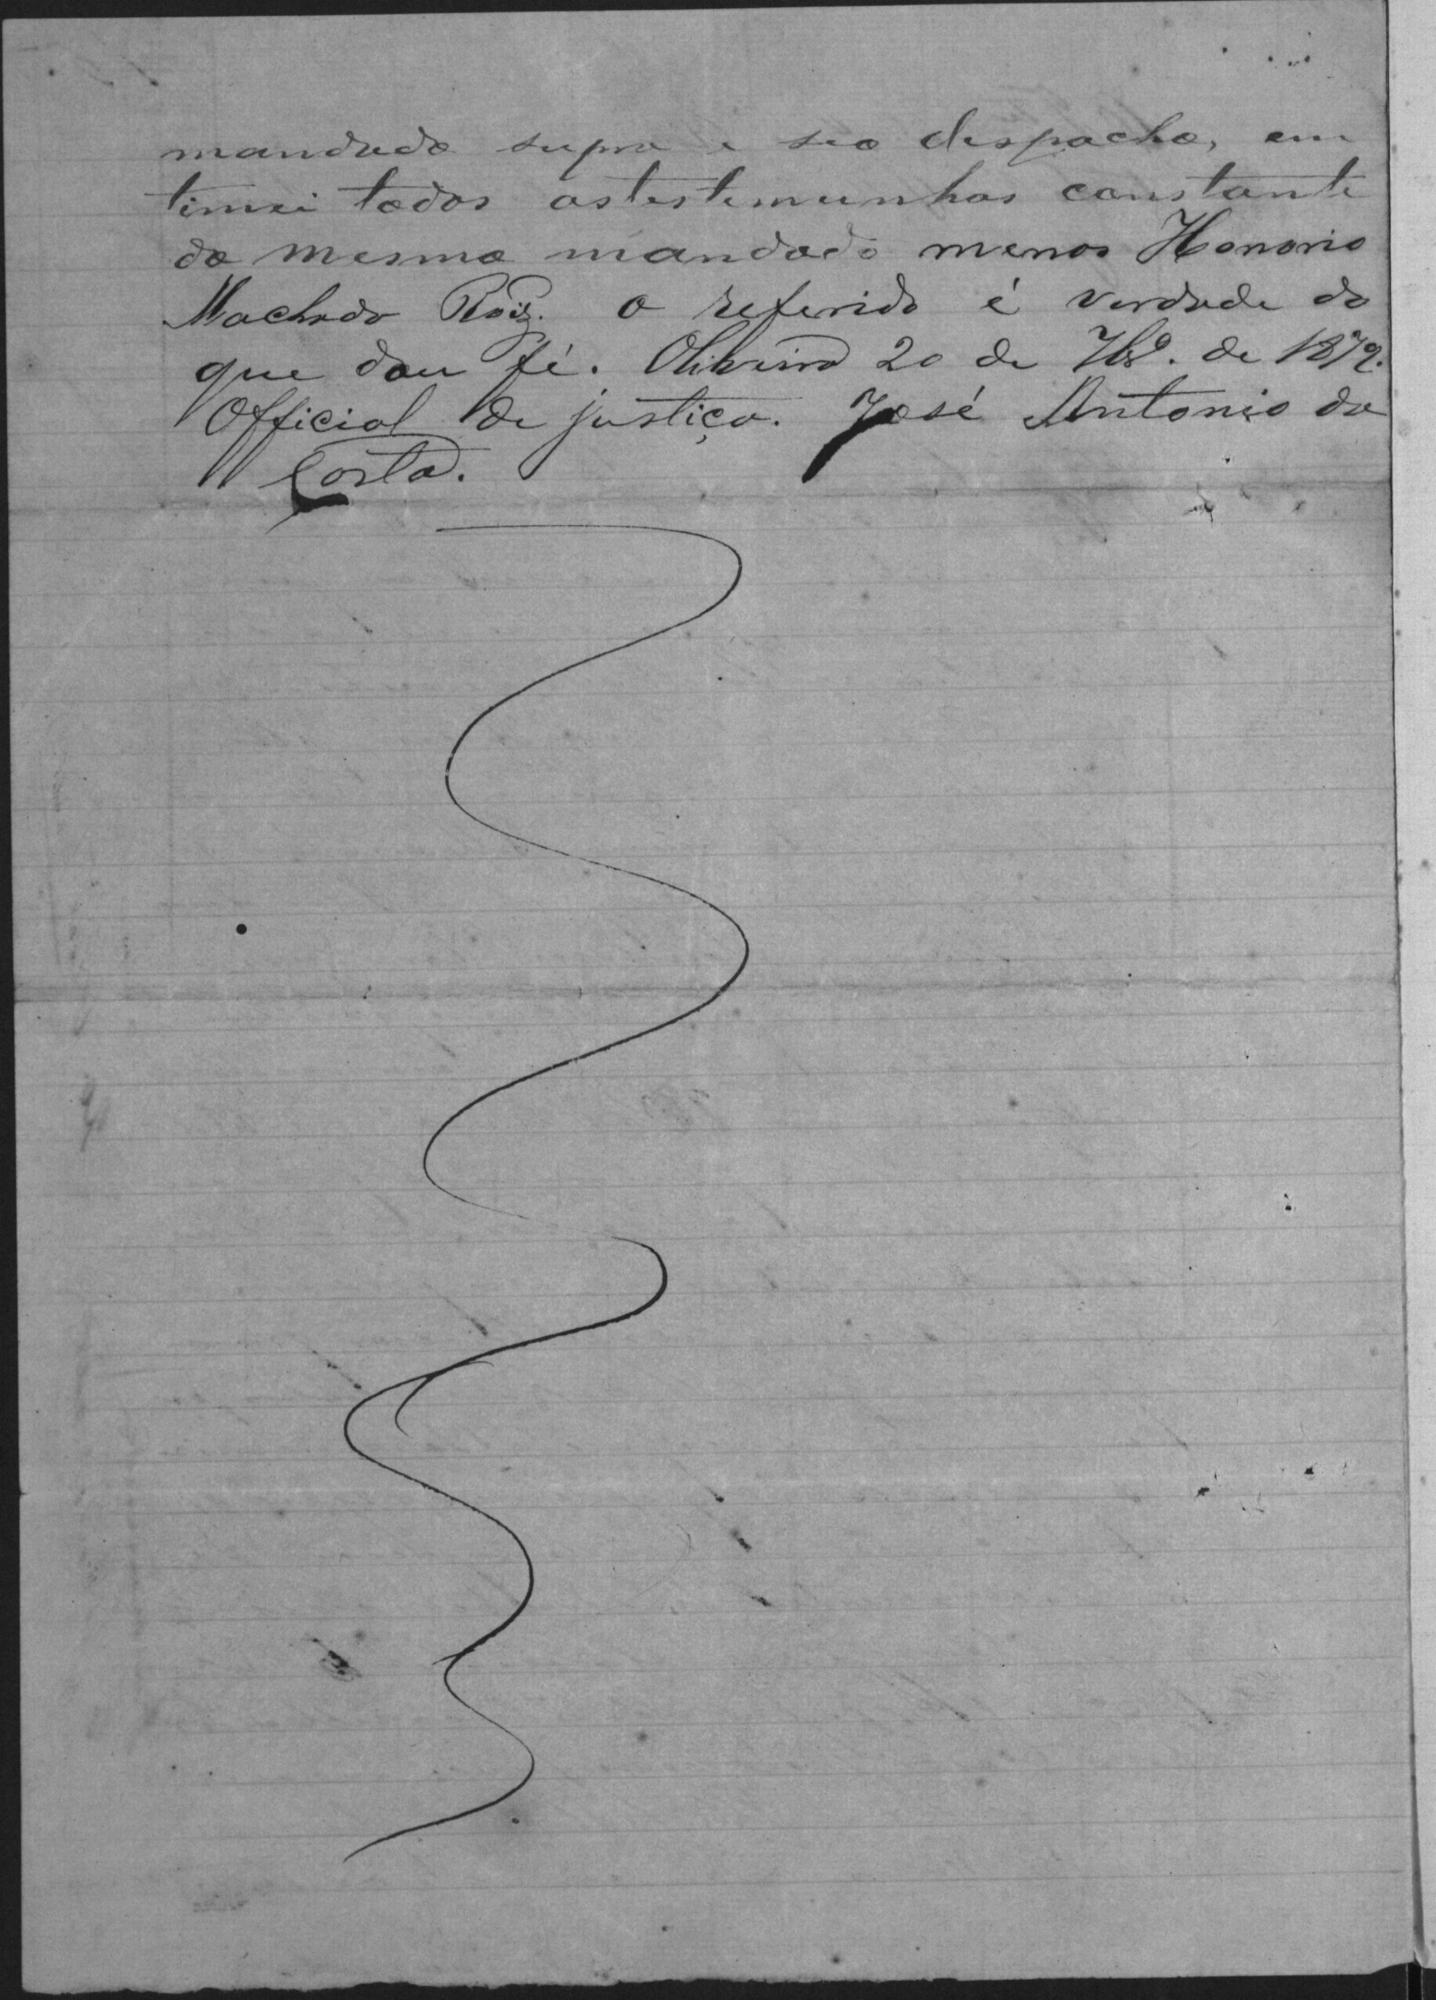 mandado supra e seo despacho, em
timei todos astestemunhas constante
do mesmo mandado menos Honorio
Machado Roiz. o referido é verdade do
que dou fé. Oliveira 20 de 7br.º de 1879.
Official de justiça. José Antonio da
Costa.